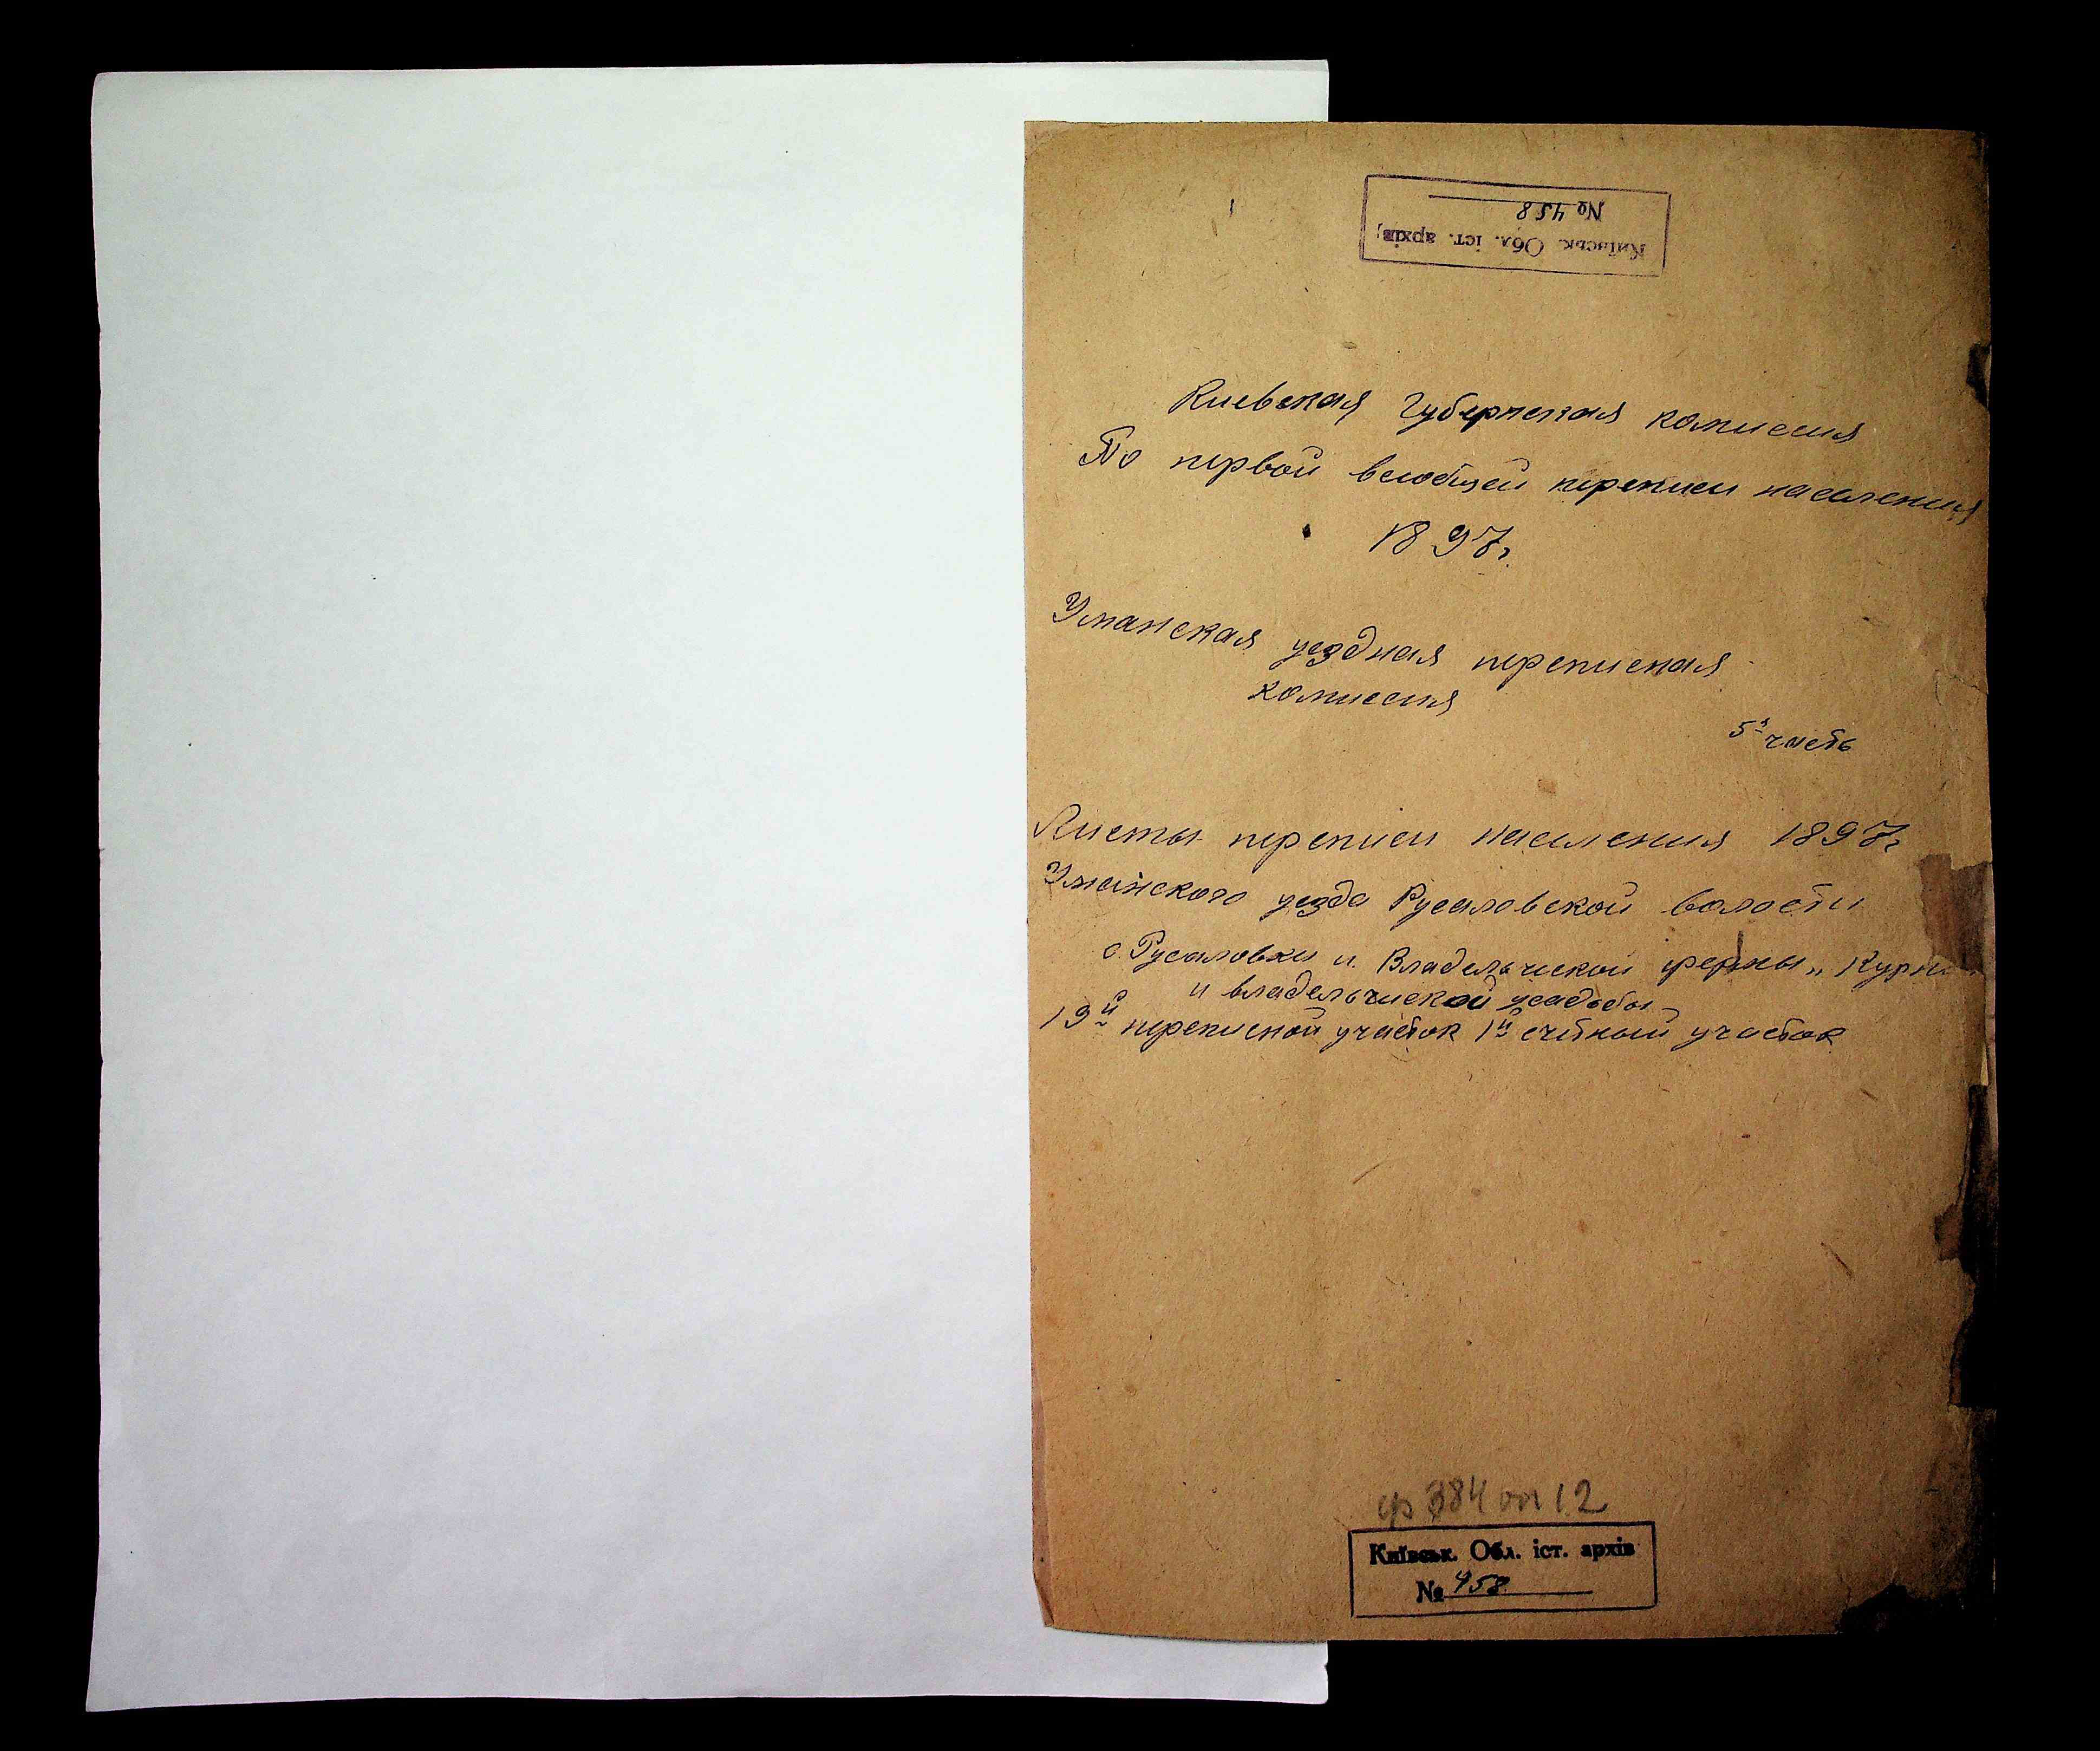 Київськ. Обл. іст. архів
№ 458
Киевская Губернская комиссия
По первой всеобщей переписи населения
1897г.
Уманская уездная переписная
комиссия
5я часть
Листы переписи населения 1897г
Уманского уезда Русаловской волости
с. Русаловки и Владельческой фермы „
и владельческой усадьбы
19й переписной участок 1й счетный участок
ф 384 оп 12
Київськ. Обл. іст. архів
№ 458